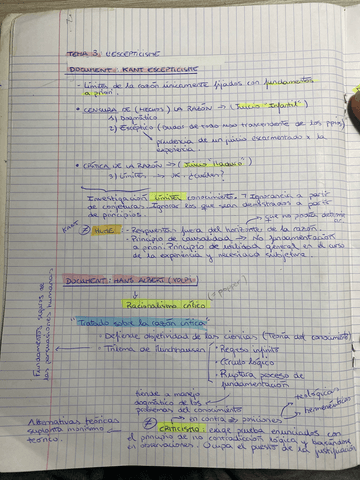 TEMA 3. L'ESCEPTICISME
DOCUMENT: KANT ESCEPTICISME
- Límites de la razón únicamente fijados con fundamentos
a priori.
• CENSURA DE (HECHOS) LA RAZÓN → (Juicio "Infantil")
1) Dogmático
2) Escéptico (Dudas de todo uso trascendente de los ppios)
prudencia de un juicio escarmentado x la
experiencia.
• CRÍTICA DE LA RAZÓN → (Juicio "Maduro")
3) Límites → ¿Cuáles?
Investigación límites conocimiento. → Ignorancia a partir
de conjeturas. Ignorar los que sean demostradas a partir
de principios.
KANT
HUME: - Respuestas fuera del horizonte de la razón.
- Principio de causalidad → No fundamentación
a priori. Principio de utilidad general en el curso
de la experiencia y necesidad subjetiva.
DOCUMENT: HANS ALBERT
Racionalismo crítico
"Tratado sobre la razón crítica"
- Defiende objetividad de las ciencias (Teoría del conocimiento)
- Trilema de Münchhausen
• Regreso infinito
• Círculo lógico
• Ruptura proceso de
fundamentación
Fundamentos seguros de
las persuasiones humanas
tiende a manejo
dogmático de los
problemas del conocimiento
en contra → posiciones
teológicas
hermenéuticas
Alternativas teóricas
suplanta monismo
teórico.
CRITICISMO: exige prueba enunciados con
el principio de no contradicción lógica y basándose
en observaciones. Ocupa el puesto de la justificación